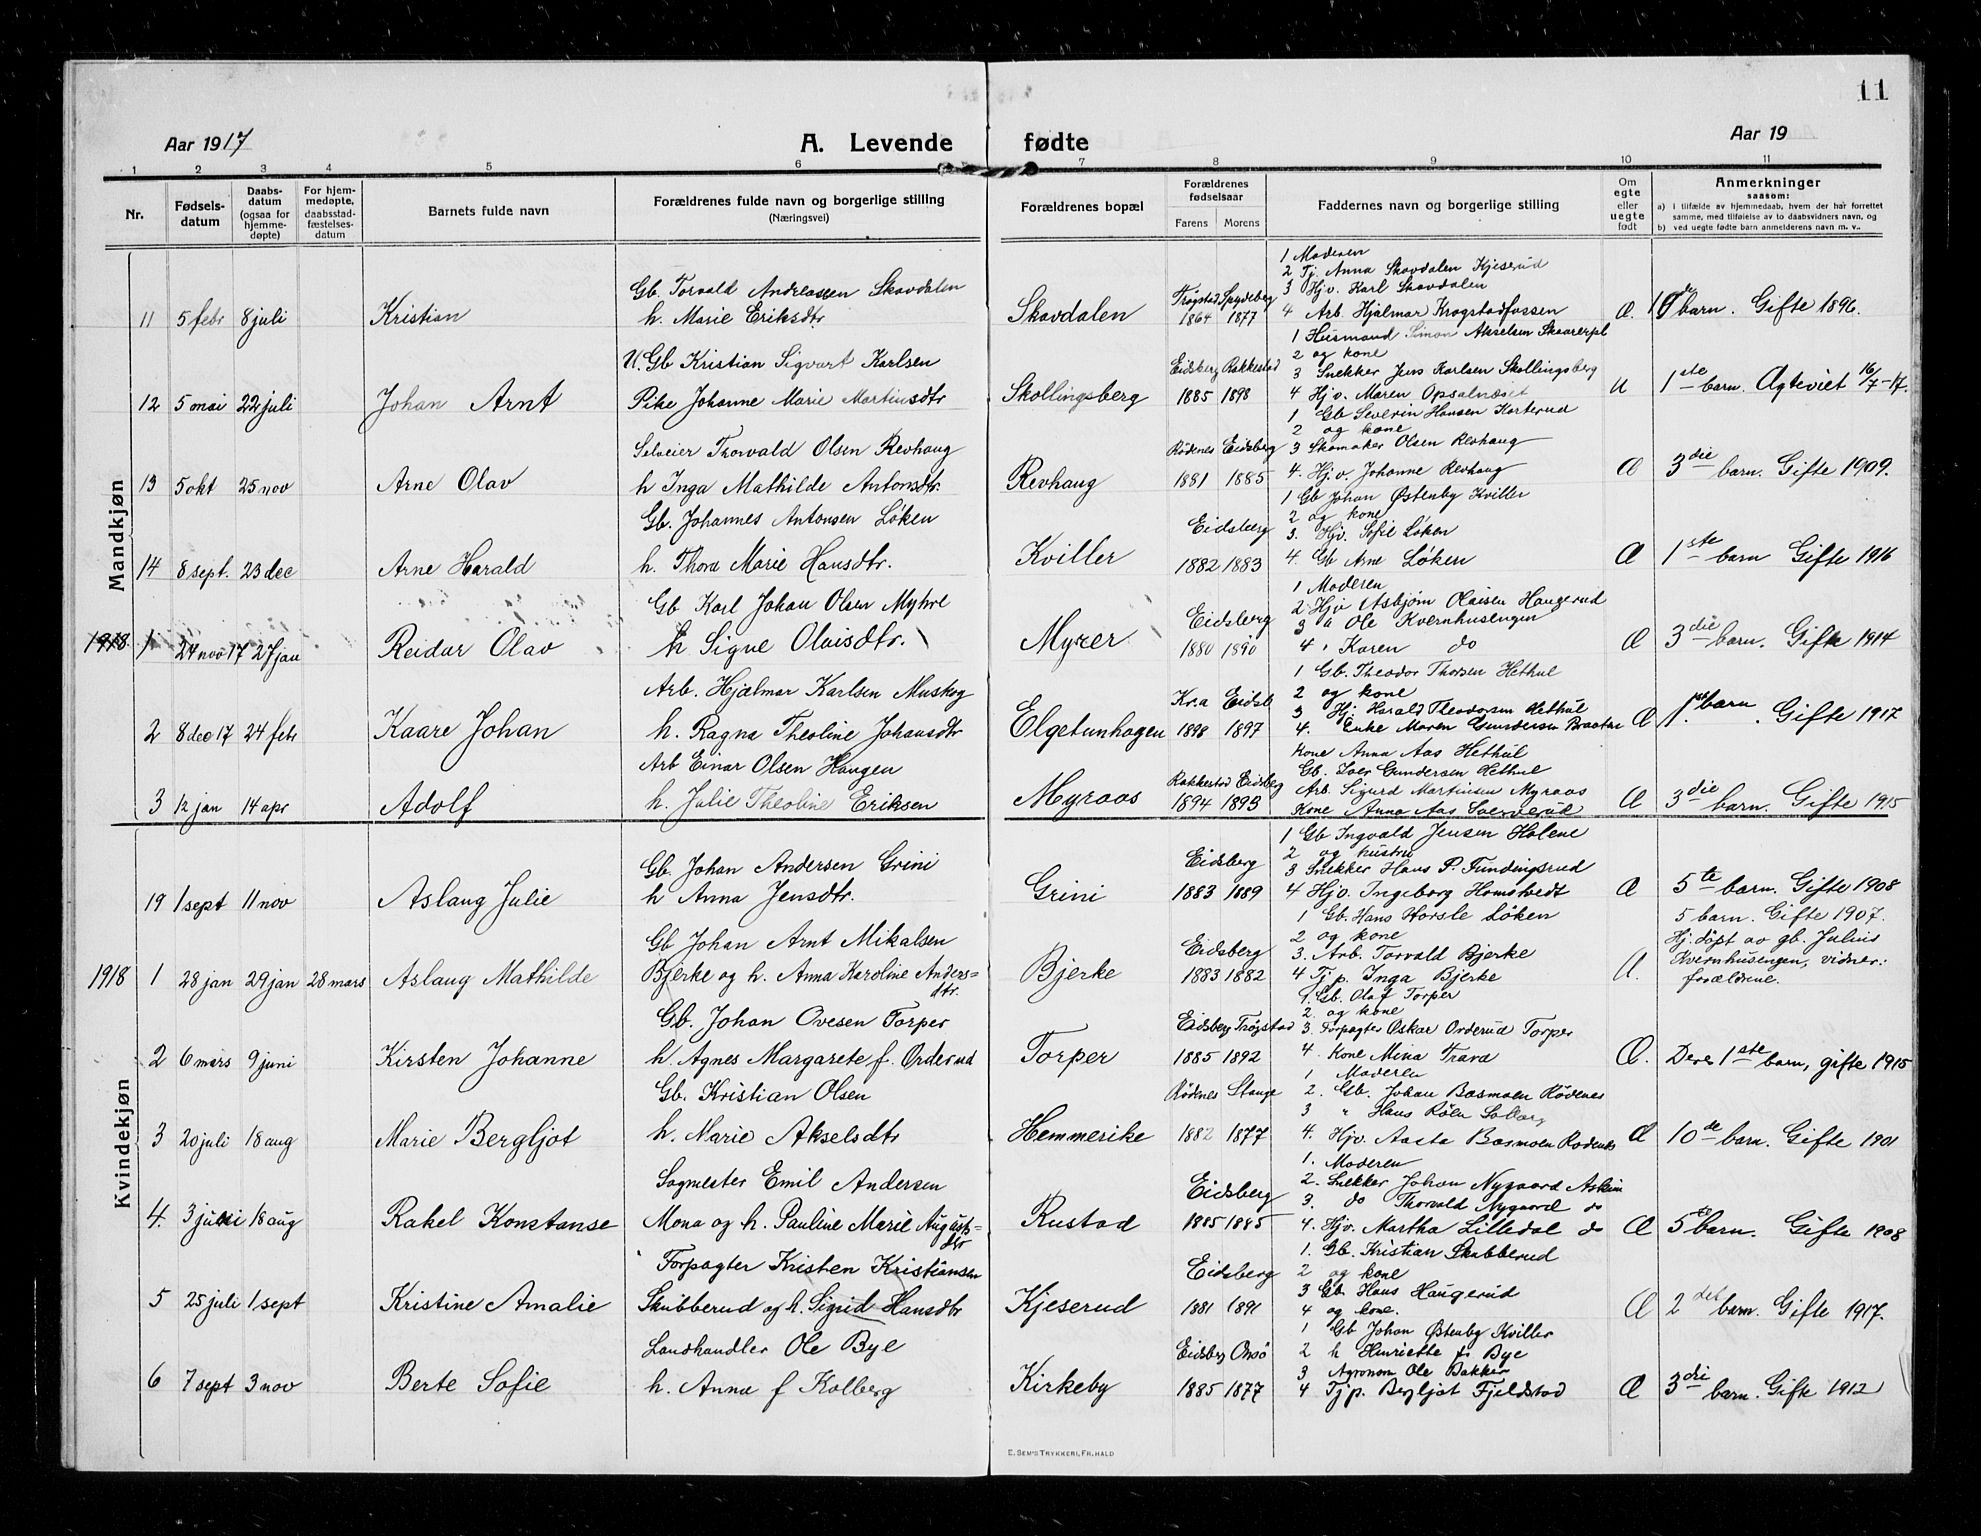 11
Aar 1917
A. Levende
fødte
Aar 19
1 2 3 4 5 6 7 8 9 10 11
Nr.
Fødsels-
datum
Daabs-
datum
(ogsaa for
hjemme-
døpte)
For hjem-
medøpte,
daabsstad-
fæstelses-
datum
Barnets fulde navn
Forældrenes fulde navn og borgerlige stilling
(Næringsvei)
Forældrenes bopæl
Forældrenes
fødselsaar
Farens Morens
Faddernes navn og borgerlige stilling
Om
egte
eller
uegte
født
Anmerkninger
saasom:
a) i tilfælde av hjemmedaab, hvem der har forrettet
samme, med tilføielse av to daabsvidners navn, og
b) ved uegte fødte barn anmelderens navn m. v..
Mandkjøn
11 5 febr 8 juli
Kristian
Gb. Torvald Andreassen Skovdalen
h. Marie Eriksdtr
Skovdalen
Trøgstad Spydeberg
1864 1877
1 Moderen
2 Tj. Anna Skovdalen Kjeserud
3 Hjv. Karl Skovdalen
4 Arb. Hjalmar Krogstadfossen
Æ. 10de barn. Gifte 1896.
12 5 mai 22 juli
Johan Arnt
U. Gb Kristian Sigvart Karlsen
Pike Johanne Marie Martinsdtr
Skollingsberg
Eidsberg Rakkestad
1885 1898
1 Husmand Simon Akselsen Skaarerpl
2 og kone
3 Snekker Jens Karlsen Skollingsberg
4 Hjv. Maren Opsalnæset
U 1ste barn. Egteviet 16/7-17.
13 5 okt 25 nov
Arne Olav
Selveier Thorvald Olsen Revhaug
h Inga Mathilde Antonsdtr.
Revhaug
Rødenes Eidsberg
1881 1885
1 Gb Severin Hansen Karterud
2 og kone
3 Skomaker Olsen Revhaug
4. Hj.v. Johanne Revhaug
Æ 3die barn. Gifte 1909.
14 8 sept. 23 dec
Arne Harald
Gb. Johannes Antonsen Løken
h. Thora Marie Hansdtr.
Kviller
Eidsberg
1882 1883
1 Gb Johan Østenby Kviller
2 og kone
3. Hjv. Sofie Løken
4. Gb Arne Løken
Æ 1ste barn Gifte 1916
1918. 1 24 nov 17 27 jan
Reidar Olav
Gb Karl Johan Olsen Myhre
h Signe Olaisdtr.
Myrer
Eidsberg
1880 1890
1 Moderen
2 Hjv Asbjørn Olaisen Haugerud
3 " Ole Kvernhusengen
4 " Karen do
Æ 3die barn. Gifte 1914
2 8 dec 17 24 febr
Kaare Johan
Arb. Hjalmar Karlsen Muskog
h. Ragna Theoline Johansdtr
Elgetunhagen
Kr.a Eidsb
1898 1897
1 Gb. Theodor Thorsen Hethul
2 og kone
3 Hj. Harald Theodorsen Hethul
4. Enke Maren Gundersen Braaten
Æ 1ste barn. Gifte 1917
3 12 jan 14 apr
Adolf
Arb Einar Olsen Haugen
h. Julie Theoline Eriksen
Myraos
Rakkestad Eidsberg
1894 1893
Kone Anna Aas Hethul
Gb. Iver Gundersen Hethul
Arb. Sigurd Martinsen Myraos
Kone Anna Aas
Æ 3die barn. Gifte 1915
Kvindekjøn
19 1 sept 11 nov
Aslaug Julie
Gb. Johan Andersen Grini
h Anna Jensdtr.
Grini
Eidsberg
1883 1889
1 Gb Ingvald Jensen Holene
2 og hustru
3 Snekker Hans P. Fundingsrud
4 Hjv. Ingeborg Homstvedt
Æ 5te barn. Gifte 1908
1918 1 28 jan 29 jan 28 mars
Aslaug Mathilde
Gb Johan Arnt Mikalsen
Bjerke og h. Anna Karoline Anders-
dtr.
Bjerke
Eidsberg
1883 1882
1 Gb. Hans Horsle Løken
2 og kone
3. Arb. Torvald Bjerke
4 Tj.p. Inga Bjerke
Æ.
5 barn. Gifte 1907.
Hj. døpt av gb. Julius
Kvernhusengen, vidner:
forældrene.
2 6 mars 9 juni
Kirsten Johanne
Gb. Johan Ovesen Torper
h. Agnes Margarete f. Orderud
Torper
Eidsberg Trøgstad
1885 1892
1. Gb. Olaf Torper
2. og kone
3. Forpagter Oskar Orderud Torper
4. Kone Mina Trava
Æ. Deres 1ste barn, gifte 1915
3 20 juli 18 aug
Marie Bergljot
Gb. Kristian Olsen
h. Marie Akselsdtr
Hemmerike
Rødenes Stange
1882 1877
1. Moderen
2. Gb. Johan Bosmoen Rødenes
3 " Hans Røen
4. Hjv. Aasta Bosmoen Rødenes
Æ 10de barn. Gifte 1901
4. 3 juni 18 aug
Rakel Konstanse
Sagmester Emil Andersen
Mona og h. Pauline Marie Augusts-
dtr
Rustad
Eidsberg
1885 1885
1. Moderen
2. Snekker Johan Nygaard Askim
3. do Thorvald Nygaard do
4. Hjv. Martha Lilledal do
Æ 5te barn. Gifte 1908
5 25 juli 1 sept
Kristine Amalie
Forpagter Kristen Kristiansen
Skubberud og h. Sigrid Hansdtr
Kjeserud
Eidsberg
1881 1891
1. Gb. Kristian Skubberud
2 og kone
3 Gb. Hans Haugerud
4 og kone.
Æ 2det barn. Gifte 1917.
6 7 sept 3 nov
Berte Sofie
Landhandler Ole Bye
h. Anna f Kolberg
Kirkeby
Eidsberg Onsø
1885 1877
1 Gb Johan Østenby Kviller
2 h Henriette f. Bye
3 Agronom Ole Bakker
4 Tj p. Bergljot Fjeldstad
Æ 3die barn. Gifte 1912
E. SEM'S TRYKKERI, FR.HALD